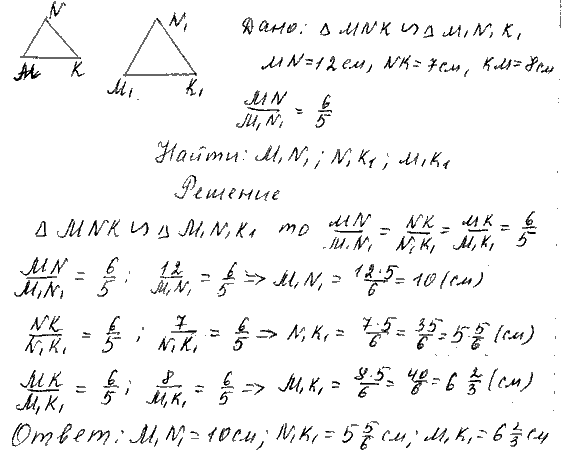 N
N₁
M K
M₁ K₁
Дано: Δ MNK ∽ Δ M₁N₁K₁
MN=12см, NK=7см, KM=8см
MN/M₁N₁ = 6/5
Найти: M₁N₁; N₁K₁; M₁K₁
Решение
Δ MNK ∽ Δ M₁N₁K₁ то MN/M₁N₁ = NK/N₁K₁ = MK/M₁K₁ = 6/5
MN/M₁N₁ = 6/5; 12/M₁N₁ = 6/5 => M₁N₁ = 12·5/6 = 10 (см)
NK/N₁K₁ = 6/5; 7/N₁K₁ = 6/5 => N₁K₁ = 7·5/6 = 35/6 = 5 5/6 (см)
MK/M₁K₁ = 6/5; 8/M₁K₁ = 6/5 => M₁K₁ = 8·5/6 = 40/6 = 6 2/3 (см)
Ответ: M₁N₁=10см; N₁K₁=5 5/6 см; M₁K₁=6 2/3 см